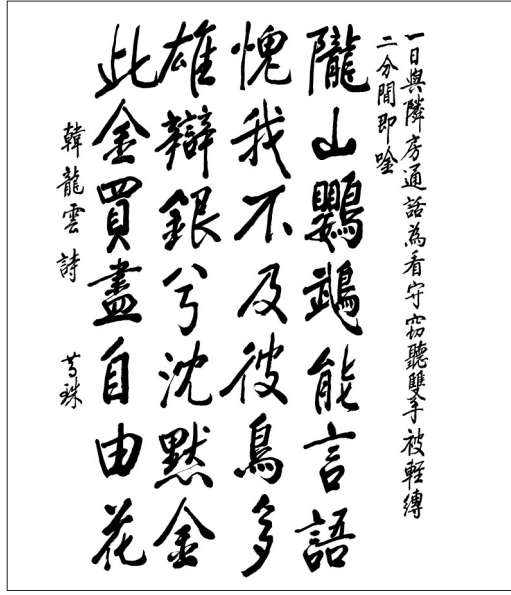 一日與隣房通話為看守窃聽雙手被輕縛
二分間即唫
隴山鸚鵡能言語
愧我不及彼鳥多
雄辯銀兮沈默金
此金買盡自由花
韓龍雲詩